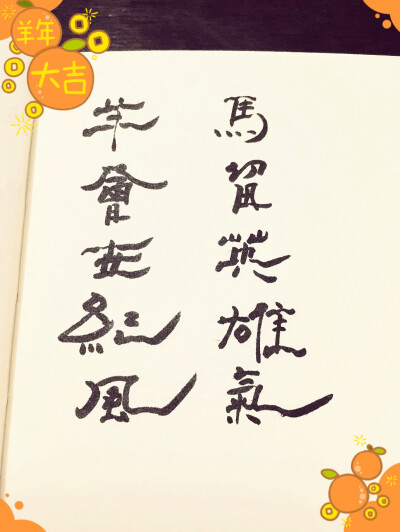 羊年
大吉
馬留英雄氣
羊會世紀風